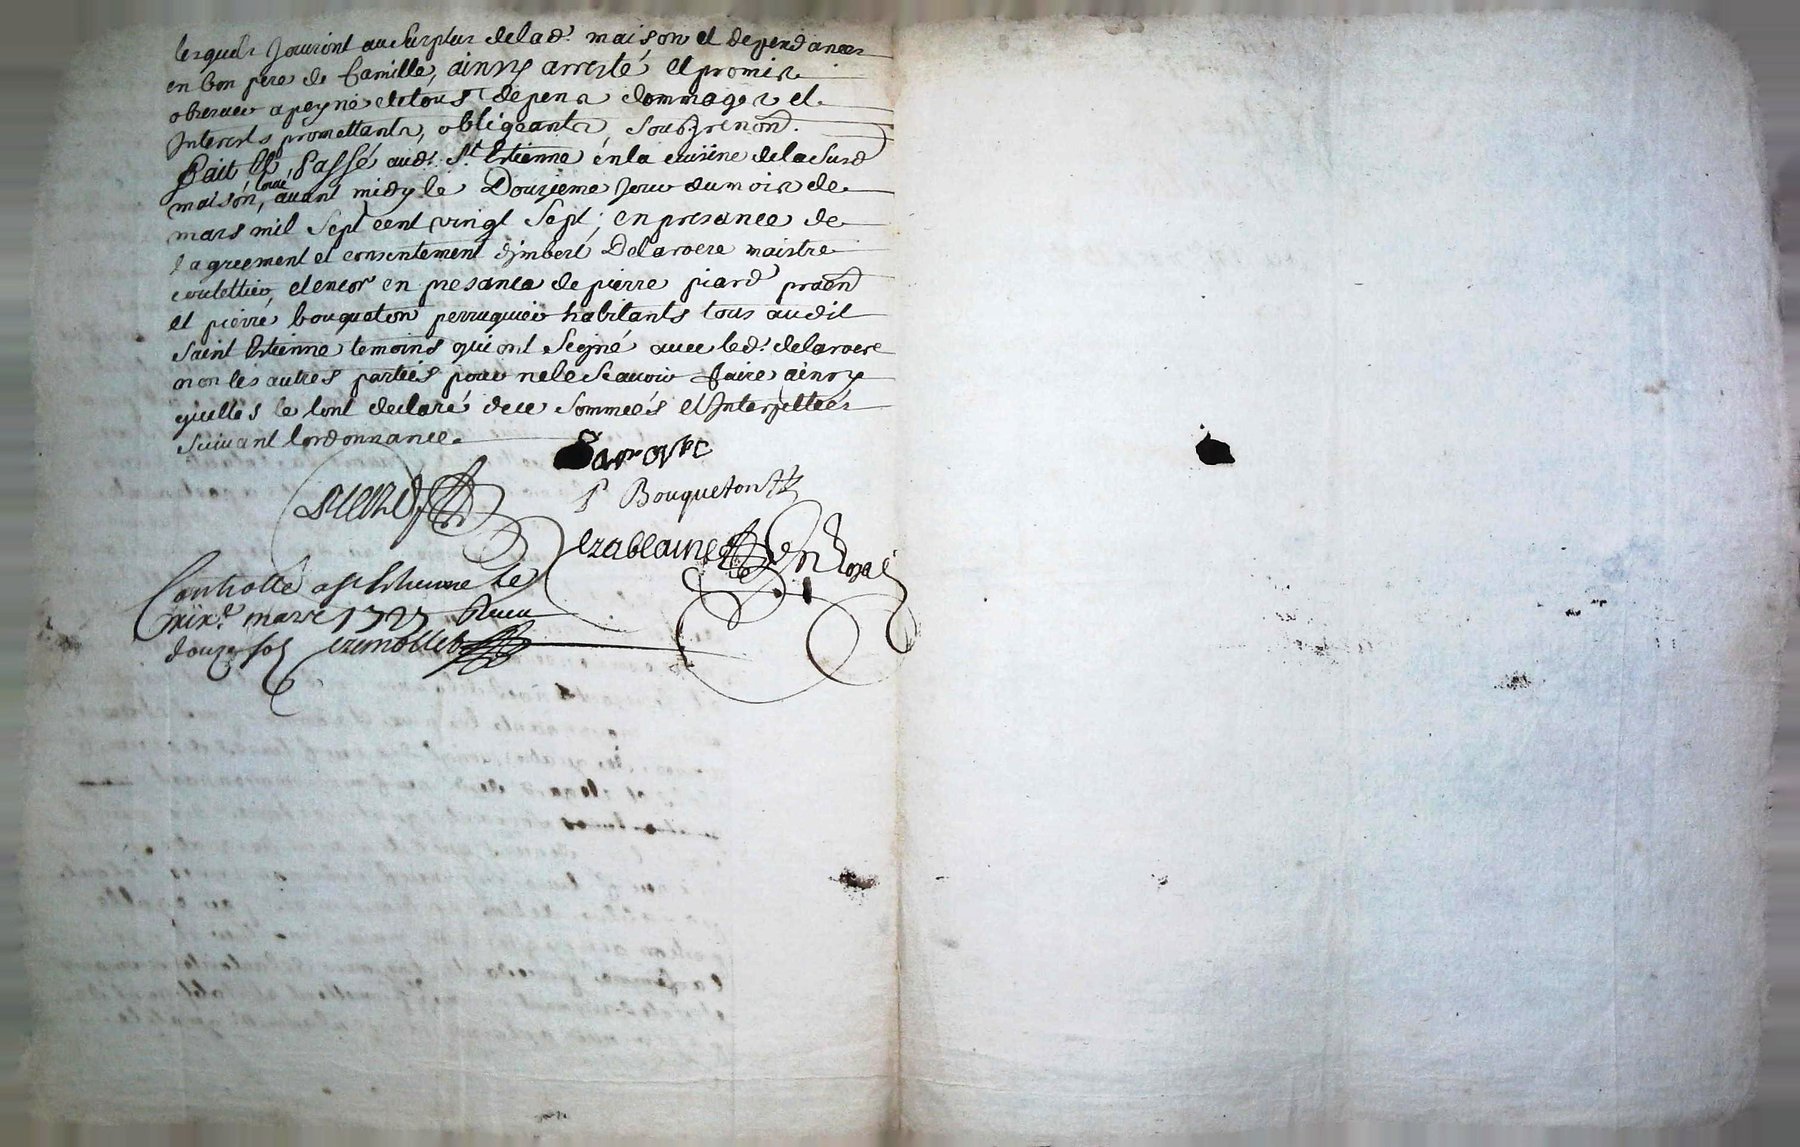 lesquels Jouiront au Surplus de lad.e maison et dependances
en bon pere de famille, ainsy arresté et promis
observer a peyne de tous depens dommages et
Interests promettants, obligeants, soubz renon.
Fait et Passé aud. St. Estienne én la cuisine de la Susd
maisón, avant midy le Douzieme Jour du mois de
mars mil Sept cent vingt Sept, en presance de
l agreement et consentement d'imbert Delaroere maistre
et encor en presance de pierre piard
et pierre bouqueton perruquier habitants tous audit
Saint Estienne temoins qui ont Signé avec led. delaroere
non les autres parties pour ne le Scavoir faire ainsy
quelles le lont declaré de ce Sommeés et Interpelleés
Suivant lordonnance.
P Bouqueton
Royal
Controllé a St Estienne le
mars 1727 Receu
douze sols